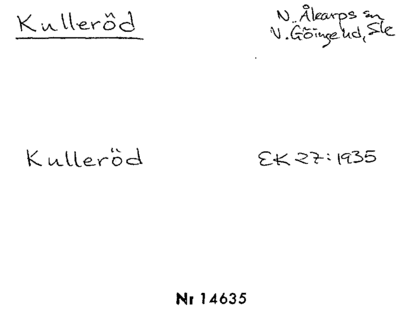 Kulleröd
N. Åkarps sn
V. Göinge hd, Sk
Kulleröd
EK 27:1935
Nr 14635